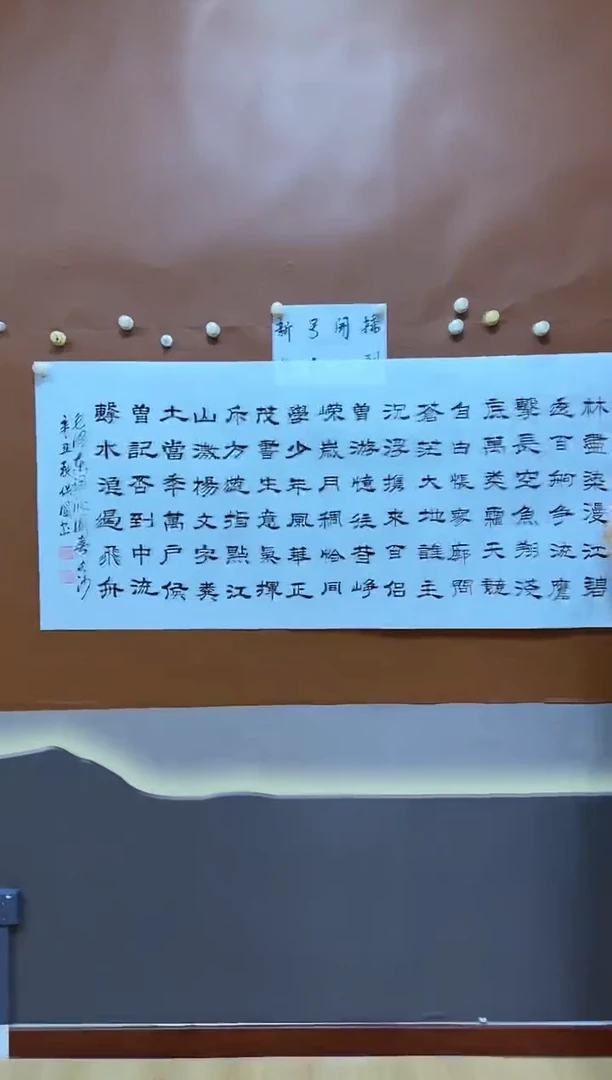 新号開播
林盡染漫江碧
透百舸爭流鷹
擊長空魚翔淺
底萬类霜天競
自由悵寥廓問
蒼茫大地誰主
沉浮攜來百侶
曾游憶往昔崢
嶸歲月稠恰同
學少年風華正
茂書生意氣揮
斥方遒指點江
山激楊文字糞
土當年萬戶侯
曾記否到中流
擊水浪遏飛舟
毛澤東詞沁園春長沙
辛丑秋